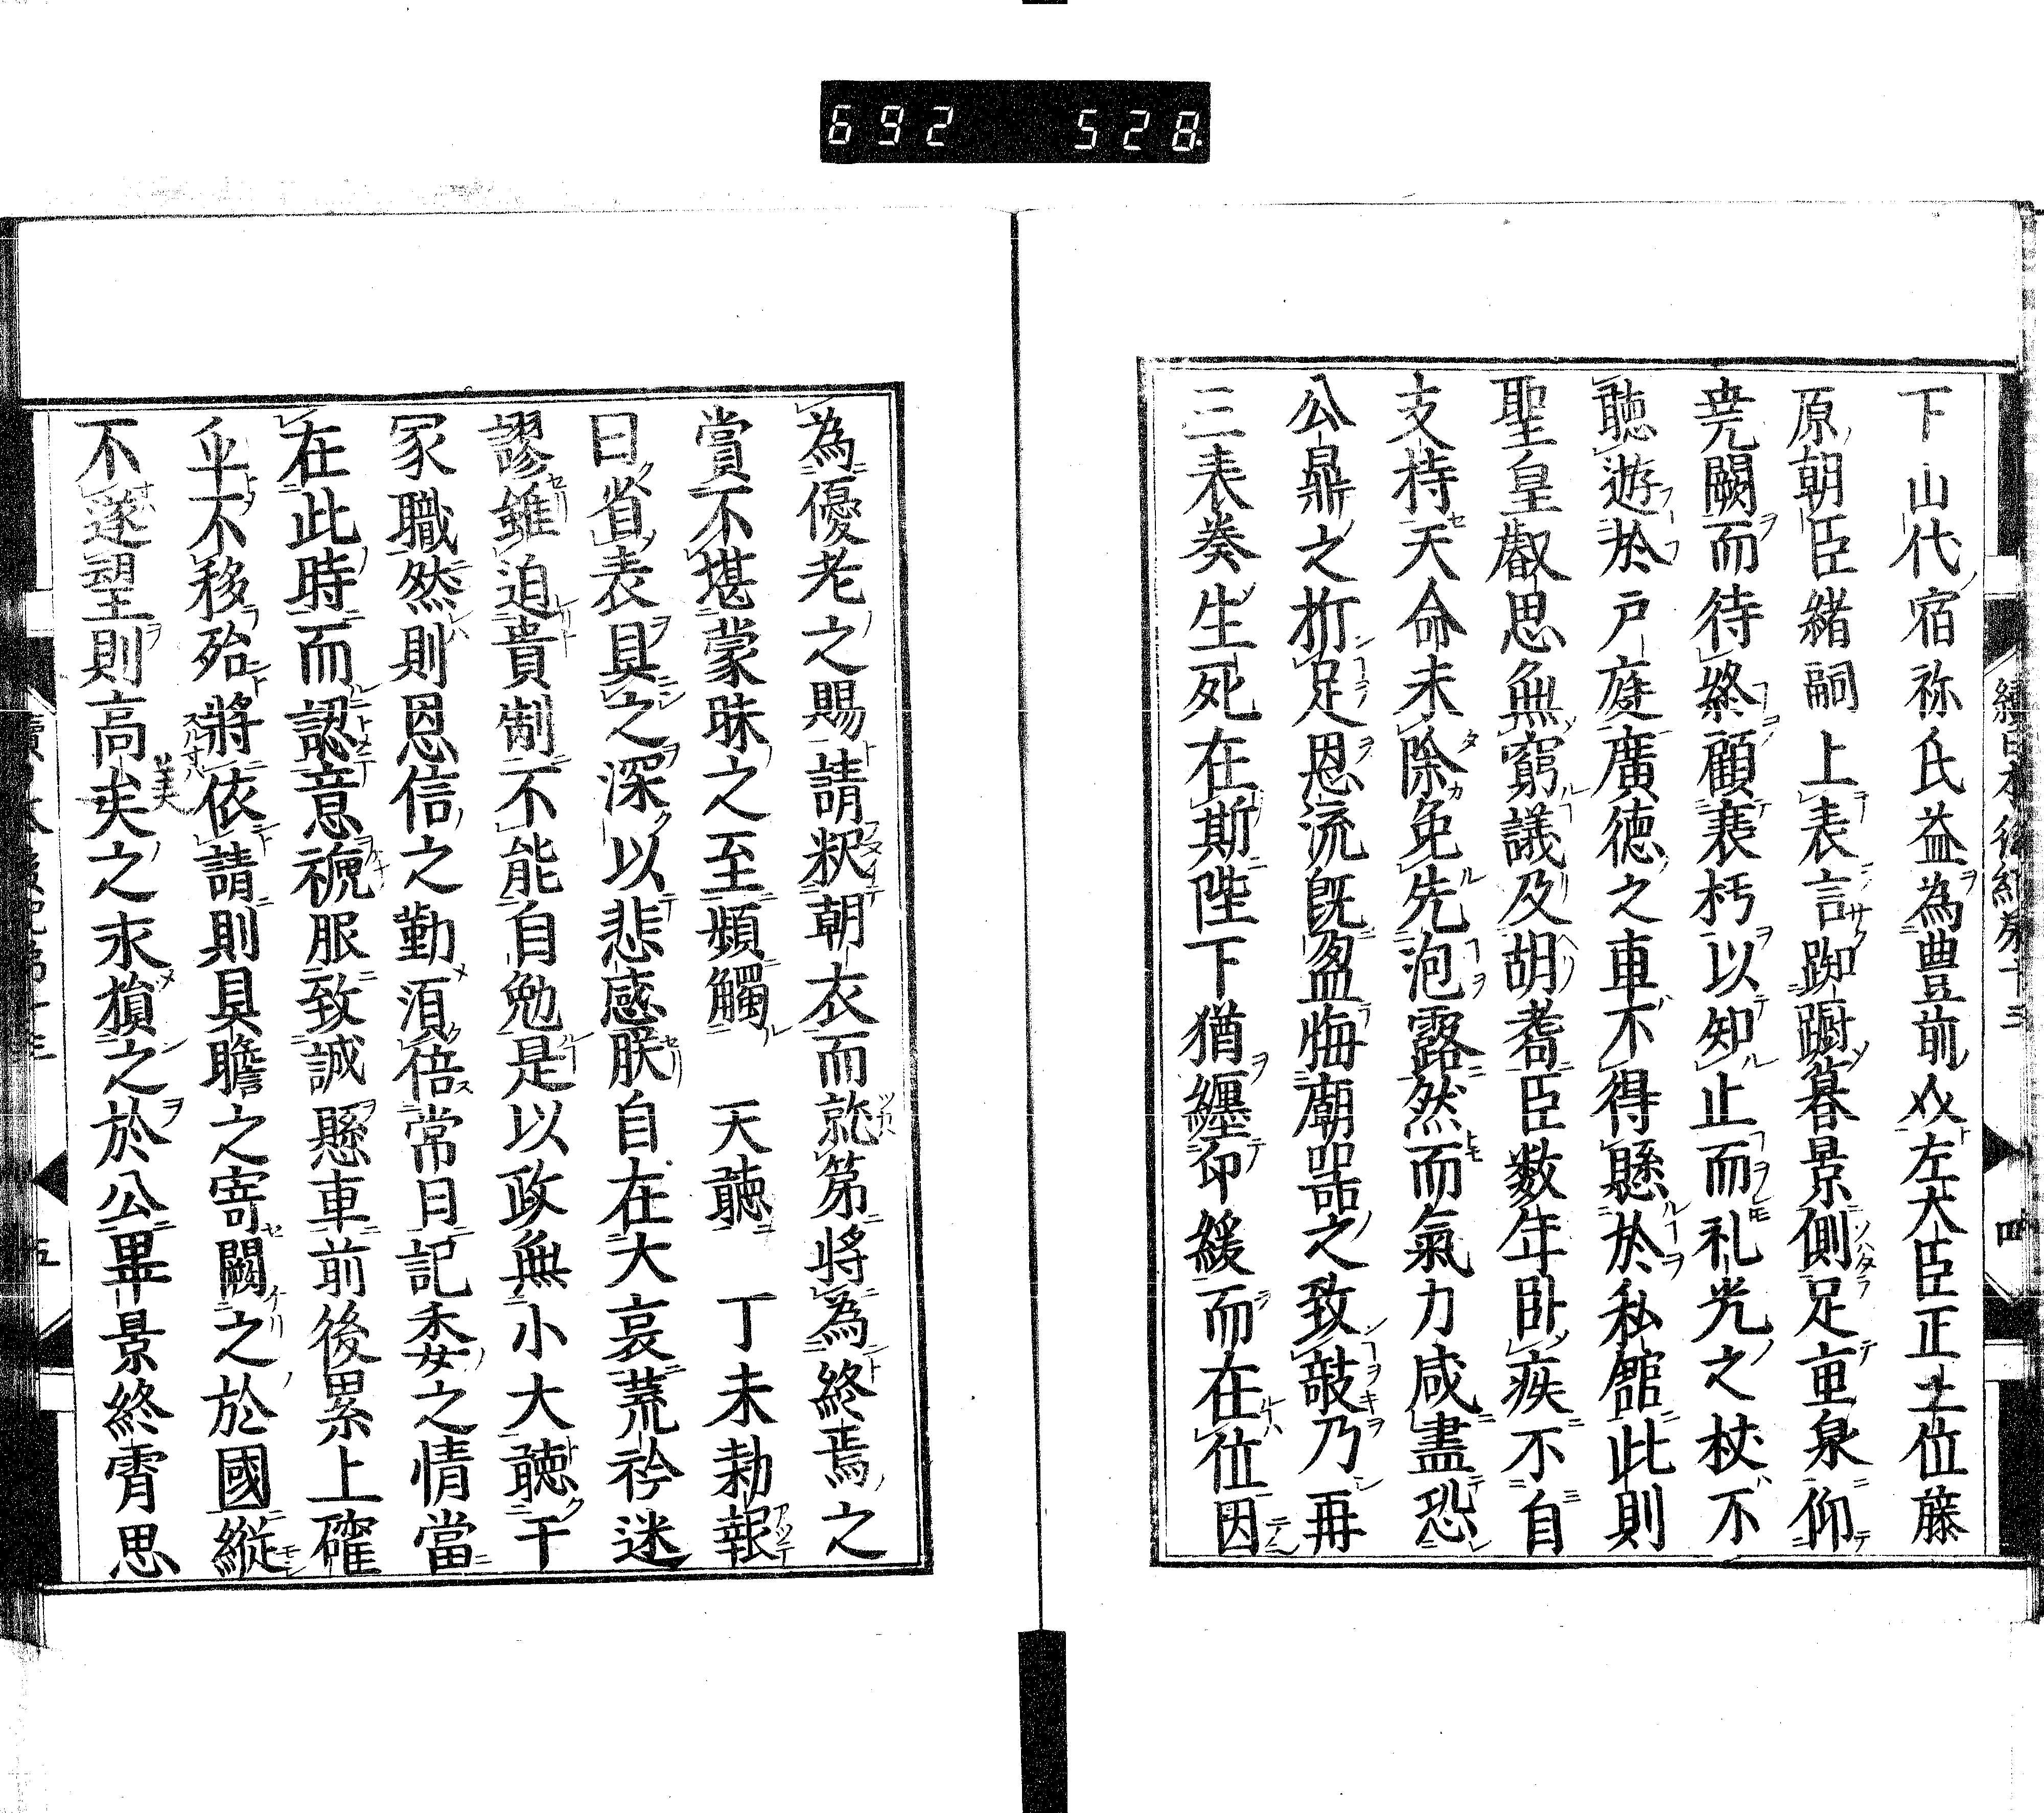 692 528
下山代宿祢氏益為豊前介左大臣正二位藤
原朝臣緒嗣上表言踟蹰暮景側足重泉仰
尭闕而待終顧衰朽以知止而礼光之杖不
聴遊於戸庭廣徳之車不得懸於私舘此則
聖皇叡思無窮議及胡耉臣数年卧疾不自
支持天命未除免先泡露然而氣力咸盡恐
公鼎之折足恩流既盈悔廟噐之致敧乃再
三表奏生死在斯陛下猶纒印綬而在位因
四
為優老之賜請釈朝衣而就苐將為終焉之
賞不堪蒙昧之至頻觸 天聴 丁未勅報
曰省表具之深以悲感朕自在大哀荒衿迷
謬雖迫貴制不能自勉是以政無小大聴于
冢職然則恩信之勤湏倍常日記委之情當
在此時而認意褫服致誠懸車前後累上確
乎不移殆將依請則具瞻之寄闕之於國縦
不遂望則高美之求損之於公畢景終霄思
五